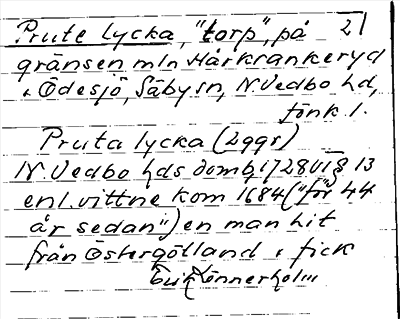 Prute lycka, "torp", på 21
gränsen mln Hårkrankeryd
i Ödesjö, Säby sn, N. Vedbo hd,
Jönk l.
Pruta lycka (2 ggr)
N. Vedbo hds domb 1728 VI 8 § 13
enl. vittne kom 1684 ("för 44
år sedan") en man hit
från Östergötland, fick
Erik Lönnerholm